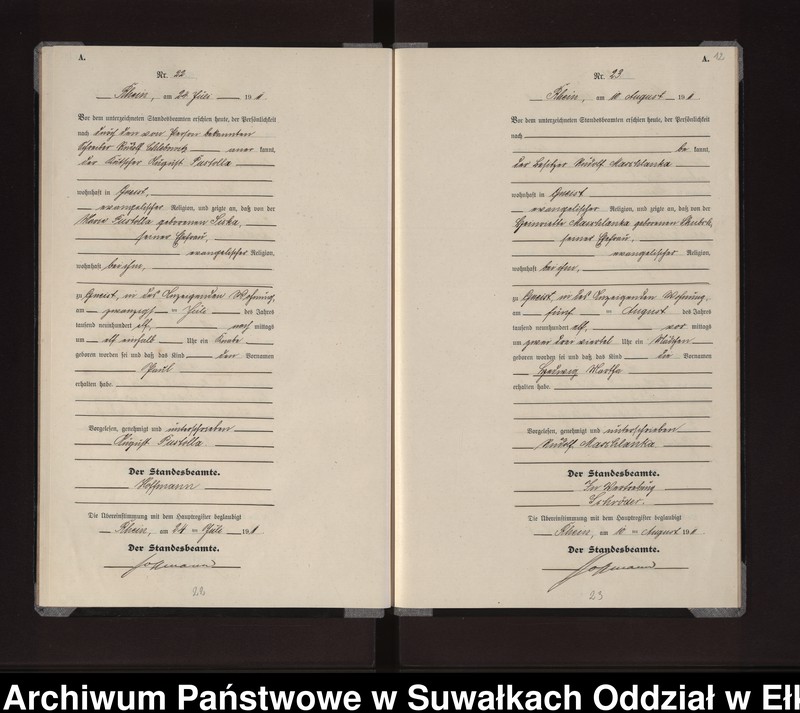 A.
Nr. 22
Rhein, am 24 Juli 1911
Vor dem unterzeichneten Standesbeamten erschien heute, der Persönlichkeit
nach durch den von Person bekannten
Schreiber Rudolf anerkannt,
der Kutscher August Pustolla
wohnhaft in Gneist,
evangelischer Religion, und zeigte an, daß von der
Marie Pustolla geborenen
seiner Ehefrau,
evangelischer Religion,
wohnhaft bei ihm,
zu Gneist, in des Anzeigenden Wohnung,
am zwanzigsten Juli des Jahres
tausend neunhundert elf, nach mittags
um elf einhalb Uhr ein Knabe
geboren worden sei und daß das Kind den Vornamen
Paul
erhalten habe.
Vorgelesen, genehmigt und unterschrieben
August Pustolla
Der Standesbeamte.
Hoffmann
Die Übereinstimmung mit dem Hauptregister beglaubigt
Rhein, am 24 ten Juli 1911
Der Standesbeamte.
Hoffmann
22
A. 12
Nr. 23
Rhein, am 10 August 1911
Vor dem unterzeichneten Standesbeamten erschien heute, der Persönlichkeit
nach
be kannt,
der Besitzer Rudolf Maschlanka
wohnhaft in Gneist
evangelischer Religion, und zeigte an, daß von der
Henriette Maschlanka geborenen
seiner Ehefrau,
evangelischer Religion,
wohnhaft bei ihm,
zu Gneist, in des Anzeigenden Wohnung,
am fünf ten August des Jahres
tausend neunhundert elf, vor mittags
um zwei drei viertel Uhr ein Mädchen
geboren worden sei und daß das Kind die Vornamen
Hedwig Martha
erhalten habe.
Vorgelesen, genehmigt und unterschrieben
Rudolf Maschlanka
Der Standesbeamte.
In Vertretung
Schröder.
Die Übereinstimmung mit dem Hauptregister beglaubigt
Rhein, am 10 ten August 1911
Der Standesbeamte.
Hoffmann
23
Archiwum Państwowe w Suwałkach Oddział w Ełk